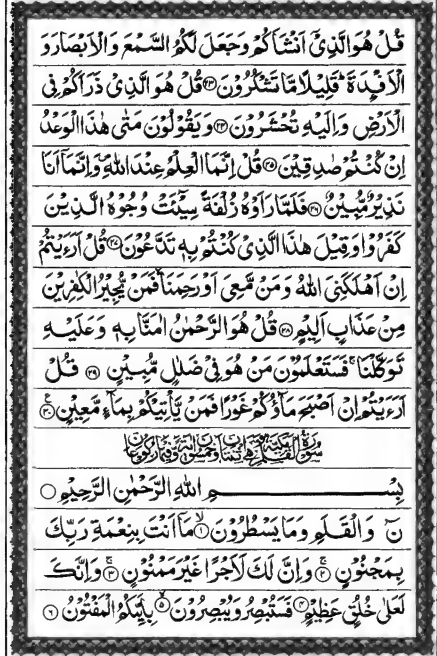 قُلْ هُوَ الَّذِیْۤ اَنْشَاَكُمْ وَجَعَلَ لَكُمُ السَّمْعَ وَالْاَبْصَارَ وَ
الْاَفْـِٕدَةَ ؕ قَلِیْلًا مَّا تَشْكُرُوْنَ ۝۲۳ قُلْ هُوَ الَّذِیْ ذَرَاَكُمْ فِی
الْاَرْضِ وَاِلَیْهِ تُحْشَرُوْنَ ۝۲۴ وَیَقُوْلُوْنَ مَتٰی هٰذَا الْوَعْدُ
اِنْ كُنْتُمْ صٰدِقِیْنَ ۝۲۵ قُلْ اِنَّمَا الْعِلْمُ عِنْدَ اللّٰهِ ۪ وَاِنَّمَاۤ اَنَا
نَذِیْرٌ مُّبِیْنٌ ۝۲۶ فَلَمَّا رَاَوْهُ زُلْفَةً سِیْٓـَٔتْ وُجُوْهُ الَّذِیْنَ
كَفَرُوْا وَقِیْلَ هٰذَا الَّذِیْ كُنْتُمْ بِهٖ تَدَّعُوْنَ ۝۲۷ قُلْ اَرَءَیْتُمْ
اِنْ اَهْلَكَنِیَ اللّٰهُ وَمَنْ مَّعِیَ اَوْ رَحِمَنَا ۙ فَمَنْ یُّجِیْرُ الْكٰفِرِیْنَ
مِنْ عَذَابٍ اَلِیْمٍ ۝۲۸ قُلْ هُوَ الرَّحْمٰنُ اٰمَنَّا بِهٖ وَعَلَیْهِ
تَوَكَّلْنَا ۚ فَسَتَعْلَمُوْنَ مَنْ هُوَ فِیْ ضَلٰلٍ مُّبِیْنٍ ۝۲۹ قُلْ
اَرَءَیْتُمْ اِنْ اَصْبَحَ مَآؤُكُمْ غَوْرًا فَمَنْ یَّاْتِیْكُمْ بِمَآءٍ مَّعِیْنٍ ۝۳۰
بِسْمِ اللّٰهِ الرَّحْمٰنِ الرَّحِیْمِ ۝
نٓ وَالْقَلَمِ وَمَا یَسْطُرُوْنَ ۝۱ۙ مَاۤ اَنْتَ بِنِعْمَةِ رَبِّكَ
بِمَجْنُوْنٍ ۝۲ۚ وَاِنَّ لَكَ لَاَجْرًا غَیْرَ مَمْنُوْنٍ ۝۳ۚ وَاِنَّكَ
لَعَلٰی خُلُقٍ عَظِیْمٍ ۝۴ فَسَتُبْصِرُ وَیُبْصِرُوْنَ ۝۵ۙ بِاَیِّىكُمُ الْمَفْتُوْنُ ۝۶